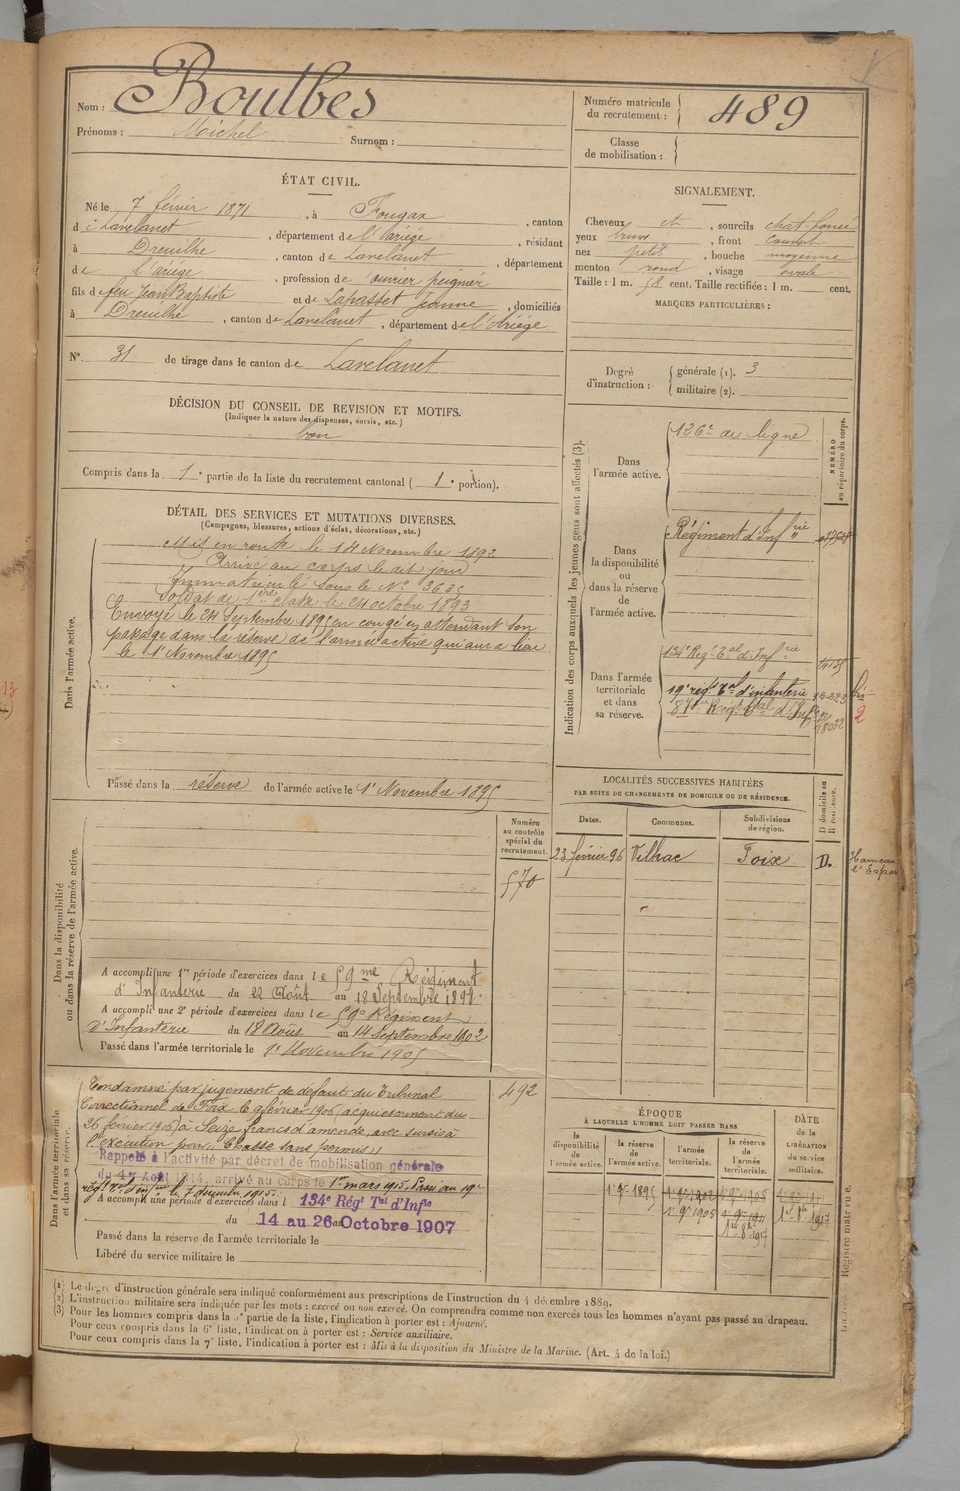 Nom : Boulbes
Prénoms : Michel Surnom :
Numéro matricule du recrutement : 489
Classe de mobilisation :
ÉTAT CIVIL.
Né le 7 février 1871, à Fougax, canton
d e Lavelanet, département de l'Ariége, résidant
à Dreuilhe, canton de Lavelanet, département
de l'ariége, profession de ouvrier peignier
fils de feu Jean Baptiste et de Lapasset Jeanne, domiciliés
à Dreuilhe, canton de Lavelanet, département de l'Ariége
N° 31 de tirage dans le canton de Lavelanet
SIGNALEMENT.
Cheveux et, sourcils chat. foncé
yeux bruns, front couvert
nez petit, bouche moyenne
menton rond, visage ovale
Taille : 1 m. 58 cent. Taille rectifiée : 1 m. cent.
MARQUES PARTICULIÈRES :
Degré d'instruction : générale (1). 3
militaire (2).
DÉCISION DU CONSEIL DE REVISION ET MOTIFS.
(Indiquer la nature des dispenses, sursis, etc.)
bon
Compris dans la 1e partie de la liste du recrutement cantonal ( 1e portion).
DÉTAIL DES SERVICES ET MUTATIONS DIVERSES.
(Campagnes, blessures, actions d'éclat, décorations, etc.)
Dans l'armée active.
Mis en route le 14 Novembre 1892
Arrivé au corps le dit jour
Immatriculé sous le N° 3635
Soldat de 1ère classe le 24 octobre 1893
Envoyé le 24 Septembre 1895 en congé en attendant son
passage dans la réserve de l'armée active qui aura lieu
le 1er Novembre 1895
Passé dans la réserve de l'armée active le 1er Novembre 1895
Indication des corps auxquels les jeunes gens sont affectés (3).
NUMÉRO au répertoire du corps.
Dans l'armée active.
126e de ligne
Dans la disponibilité ou dans la réserve de l'armée active.
Régiment d'Infrie
Dans l'armée territoriale et dans sa réserve.
134e Régt Tal d'Infrie
19e régt Tal d'infanterie
87e Régt Tal d'Infrie
18032
bis
2
LOCALITÉS SUCCESSIVES HABITÉES
PAR SUITE DE CHANGEMENTS DE DOMICILE OU DE RÉSIDENCE.
D domicile ou R résidence.
Dates. Communes. Subdivisions de région.
23 février 96 Vilhac Foix D. Hameau
Numéro au contrôle spécial du recrutement.
570
Dans la disponibilité ou dans la réserve de l'armée active.
A accompli une 1re période d'exercices dans le 59me Régiment
d'Infanterie du 22 Août au 18 Septembre 1898
A accompli une 2e période d'exercices dans le 59e Régiment
d'Infanterie du 18 Août au 14 Septembre 1902
Passé dans l'armée territoriale le 1er Novembre 1905
Dans l'armée territoriale et dans sa réserve.
492
Condamné par jugement de défaut du Tribunal
Correctionnel de Foix le 9 février 1906 (acquiescement du
26 février 1906) à Seize francs d'amende, avec sursis à
l'exécution pour: Chasse sans permis.
Rappelé à l'activité par décret de mobilisation générale
du 1er Août 1914, arrivé au corps le 1er mars 1915. Passé au 19e
régt Tal d'Infrie le 7 décembre 1915.
A accompli une période d'exercices dans l 134e Régt Tal d'Infie
du 14 au 26 Octobre 1907
Passé dans la réserve de l'armée territoriale le
Libéré du service militaire le
ÉPOQUE
À LAQUELLE L'HOMME DOIT PASSER DANS
DATE de la LIBÉRATION du service militaire.
la disponibilité de l'armée active. la réserve de l'armée active. l'armée territoriale. la réserve de l'armée territoriale.
1er 9bre 1895 1er 9bre 1902 1er 9bre 1908
1er 9bre 1905 1er 9bre 1911
(1) Le degré d'instruction générale sera indiqué conformément aux prescriptions de l'instruction du 4 décembre 1889.
(2) L'instruction militaire sera indiquée par les mots : exercé ou non exercé. On comprendra comme non exercés tous les hommes n'ayant pas passé au drapeau.
(3) Pour les hommes compris dans la 5e partie de la liste, l'indication à porter est : Ajourné.
Pour ceux compris dans la 6e liste, l'indication à porter est : Service auxiliaire.
Pour ceux compris dans la 7e liste, l'indication à porter est : Mis à la disposition du Ministre de la Marine. (Art. 4 de la loi.)